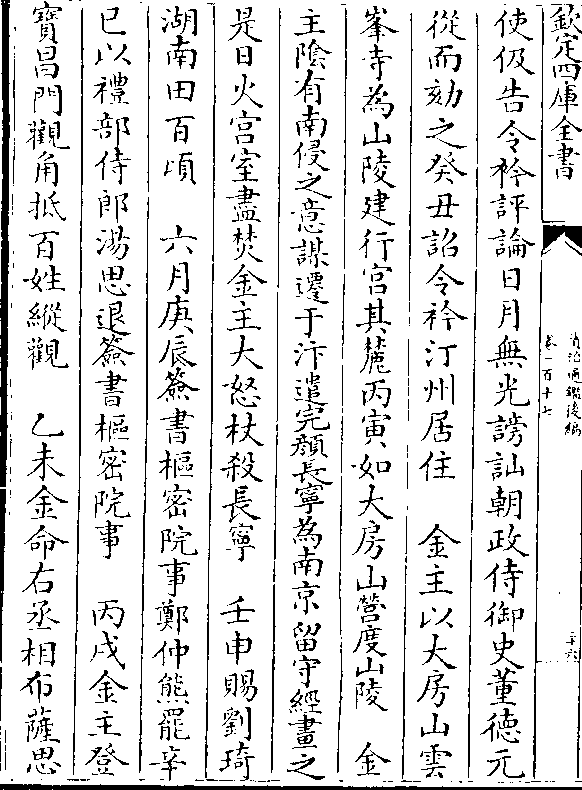 欽定四庫全書
資治通鑑後編
卷一百十七
二十六
使伋告令衿評論日月無光謗訕朝政侍御史董德元
從而劾之癸丑詔令衿汀州居住　金主以大房山雲
峯寺為山陵建行宮其麓丙寅如大房山營度山陵　金
主陰有南侵之意謀遷于汴遣完顏長寧為南京留守經畫之
是日火宮室盡焚金主大怒杖殺長寧　壬申賜劉琦
湖南田百頃　六月庚辰簽書樞密院事鄭仲熊罷辛
巳以禮部侍郎湯思退簽書樞密院事　丙戌金主登
寶昌門觀角抵百姓縱觀　乙未金命右丞相布薩思